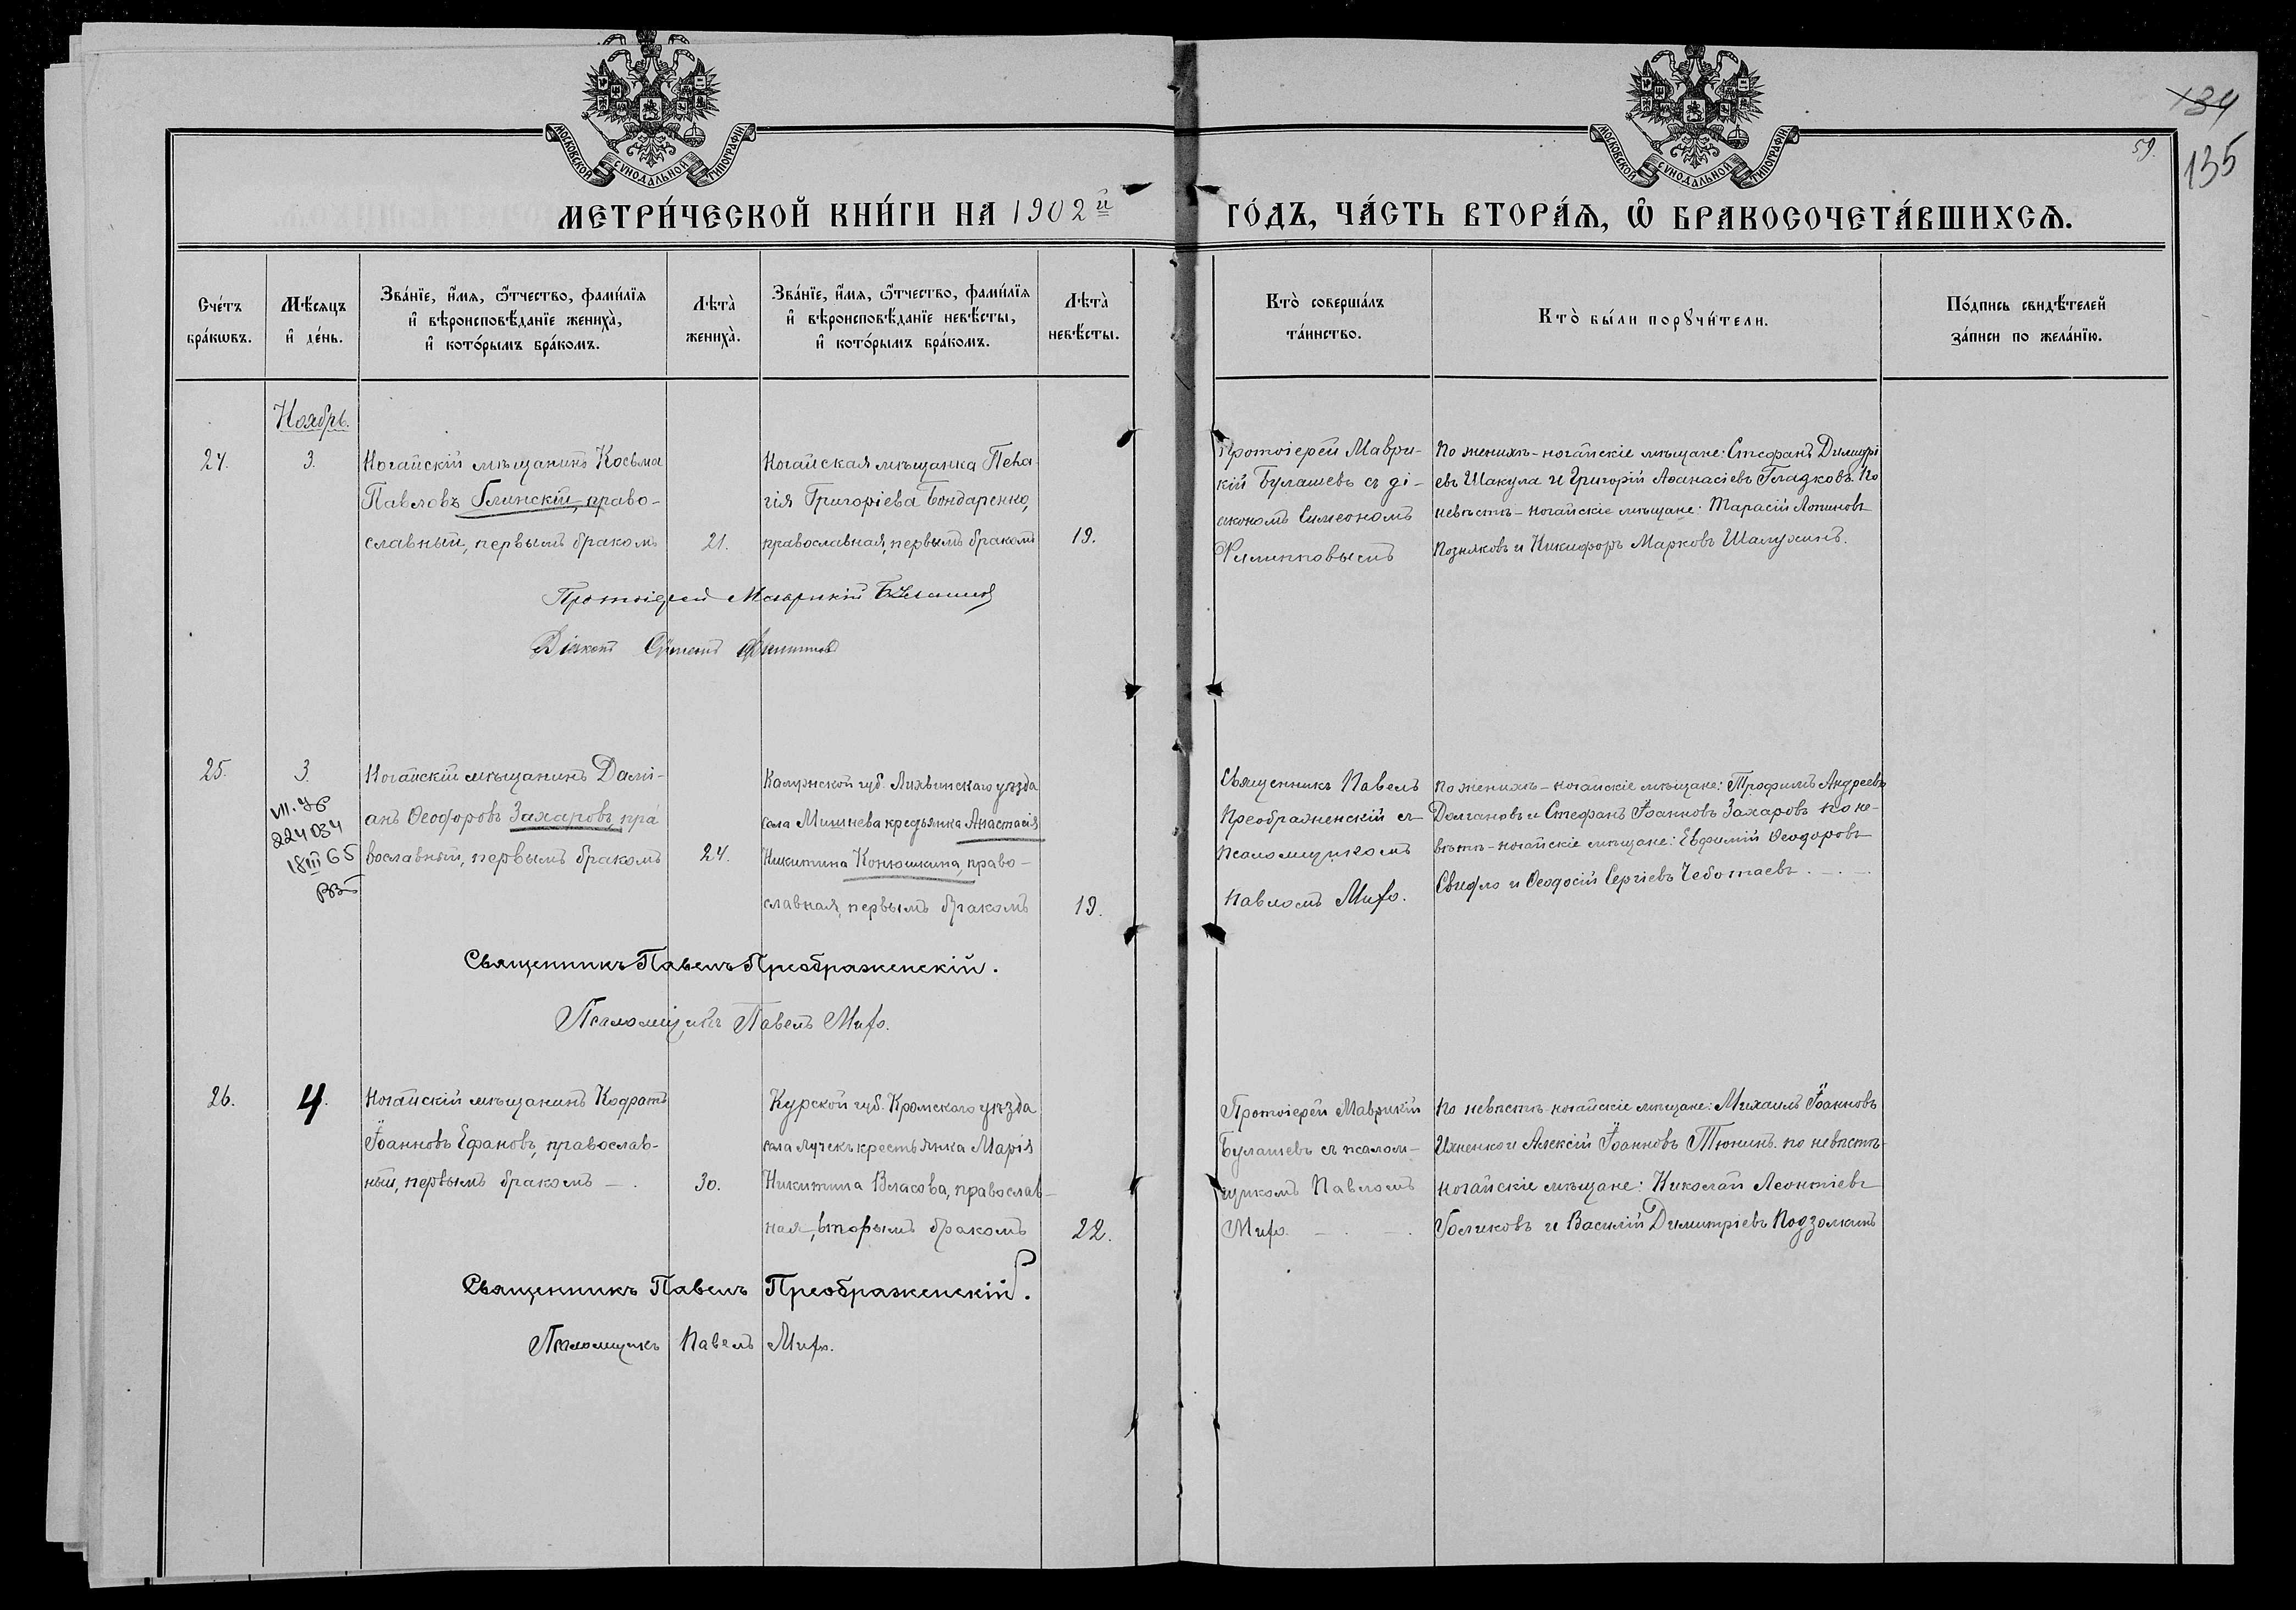 МОСКОВСКОЙ СѴНОДАЛЬНОЙ ТИПОГРАФІИ
МОСКОВСКОЙ СѴНОДАЛЬНОЙ ТИПОГРАФІИ
134
59.
135
МЕТРИ́ЧЕСКОЙ КНИ́ГИ НА 1902й ГО́ДЪ, ЧА́СТЬ ВТОРА́Ѧ, Ѡ҆ БРАКОСОЧЕТА́ВШИХСѦ.
Сче́тъ
бра́кѡвъ.
Мѣ́сяцъ
и҆ де́нь.
Зва́нїе, и҆́мя, ѻ҆́тчество, фами́лїя
и҆ вѣроисповѣ́данїе жениха̀,
и҆ кото́рымъ бра́комъ.
Лѣта̀
жениха̀.
Зва́нїе, и҆́мя, ѻ҆́тчество, фами́лїя
и҆ вѣроисповѣ́данїе невѣ́сты,
и҆ кото́рымъ бра́комъ.
Лѣта̀
невѣ́сты.
Кто̀ соверша́лъ
та́инство.
Кто̀ бы́ли порꙋчи́тели.
По́дпись свидѣ́телей
за́писи по жела́нїю.
Ноябрь.
24.
3.
Ногайскій мѣщанинъ Косьма
Павловъ Глинскій, право-
славный, первымъ бракомъ
21.
Ногайская мѣщанка Пела-
гія Григоріева Бондаренко,
православная, первымъ бракомъ
19.
Протоіерей Маври-
кій Булашевъ съ ді-
акономъ Симеономъ
Филипповымъ
По женихѣ - ногайскіе мѣщане: Стефанъ Димитрі
евъ Шакула и Григорій Аѳанасіевъ Гладковъ. По
невѣстѣ - ногайскіе мѣщане: Тарасій Логиновъ
Позняковъ и Никифоръ Марковъ
Протоіерей Маврикій Булашевъ
Діаконъ Симеонъ Филипповъ
25.
3.
224034
18 III 65
Ногайскій мѣщанинъ Дамі-
анъ Ѳеодоровъ Захаровъ, пра
вославный, первымъ бракомъ
24.
Калужской губ. Лихвинскаго уѣзда
села Мишнева крестьянка Анастасія
Никитина Конюшкина, право-
славная, первымъ бракомъ
19.
Священникъ Павелъ
Преображенскій съ
псаломщикомъ
Павломъ
По женихѣ - ногайскіе мѣщане: Трофимъ Андреевъ
Долгановъ и Стефанъ Іоанновъ Захаровъ по не-
вѣстѣ - ногайскіе мѣщане: Евфимій Ѳеодоровъ
и Ѳеодосій Сергіевъ Чеботаевъ.
Священникъ Павелъ Преображенскій.
Псаломщикъ Павелъ
26.
4.
Ногайскій мѣщанинъ Кодратъ
Іоанновъ Ефановъ, православ-
ный, первымъ бракомъ
30.
Курской губ. Кромскаго уѣзда
села Лучекъ крестьянка Марія
Никитина Власова, православ-
ная, вторымъ бракомъ
22.
Протоіерей Маврикій
Булашевъ съ псалом-
щикомъ Павломъ
По невѣстѣ ногайскіе мѣщане: Михаилъ Іоанновъ
Ихненко и Алексій Іоанновъ Тюнинъ. по невѣстѣ-
ногайскіе мѣщане: Николай Леонтіевъ
Голиковъ и Василій Димитріевъ
Священникъ Павелъ Преображенскій.
Псаломщикъ Павелъ